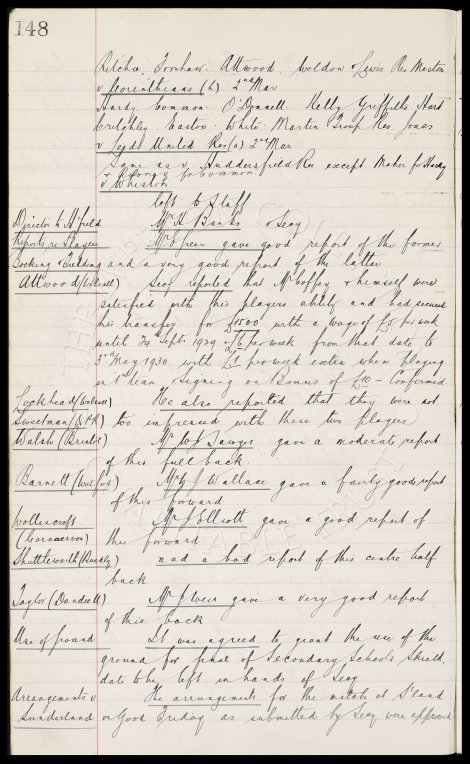 148
Ritchie, Attwood Weldon & Lewis Res Martin
v Corinthians (h) 2nd Mar
Hardy Common O'Donnell Kelly Griffiths Hart
Critchley Easton White Martin Troup Res Jones
v Leeds United Res (a) 2nd Mar
Same as v Huddersfield Res except Maher for Hardy
& for Common
v Whiston
left to Staff
Director to H'field Mr H Banks & Secy
Reports re Players Mr E Green gave good report of the former
Bocking & Fielding and a very good report of the latter
Attwood (Walsall) Secy reported that Mr Coffey & himself were
satisfied with this players ability and had secured
his transfer for £1500 with a wage of £5 per week
until Sept. 1929 & £6 per week from that date to
3rd May 1930 with £1 per week extra when playing
in 1st team & signing on Bonus of £10 - Confirmed
Lockhead (Walsall) He also reported that they were not
Sweetman (QPR) too impressed with these two players
Walsh (Bristol) Mr W J Sawyer gave a moderate report
of this full back
Barnett (Watford) Mr G J Wallace gave a fairly good report
of this forward
Woltencroft Mr J Ellicott gave a good report of
(Carnaervon) this forward
Shuttleworth (Rochdly) and a bad report of this centre half
back
Taylor (Dundee U) Mr J Weir gave a very good report
of this back
Use of ground It was agreed to grant the use of the
ground for final of Secondary Schools Shield.
date to be left in hands of Secy
Arrangements v The arrangements for the match at S'land
Sunderland on Good Friday as submitted by Secy were approved